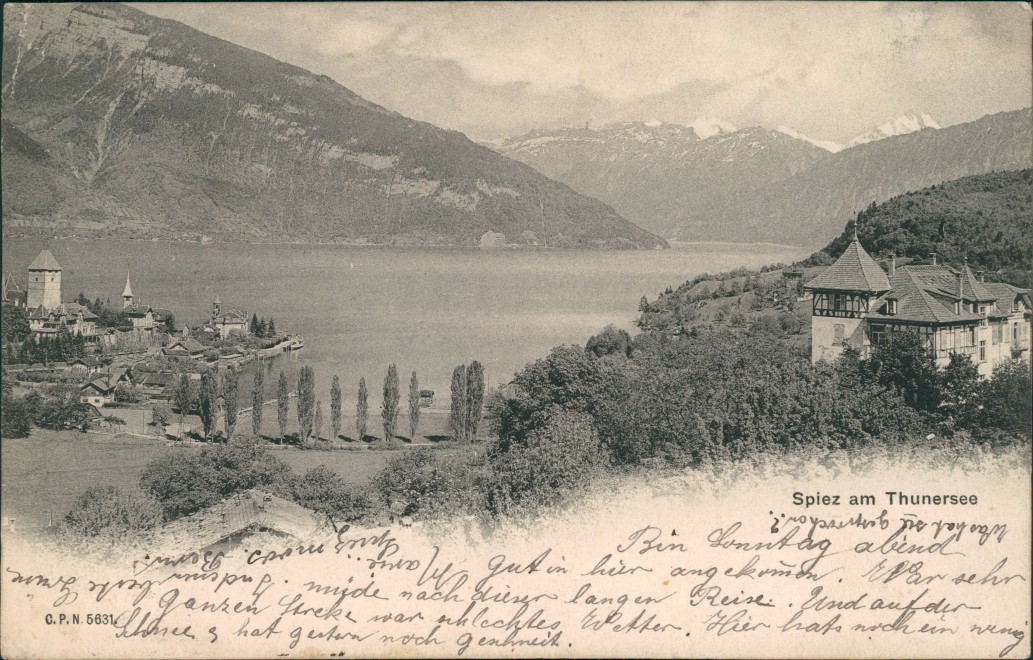 Spiez am Thunersee
Bin Sonntag abend
Gut in hier angekommen. War sehr
müde nach dieser langen Reise. Und auf der
Ganzen Streke war schlechtes Wetter. Hier hats noch ein wenig
Schnee es hat gestern noch geschneit.
C.P.N. 5631.